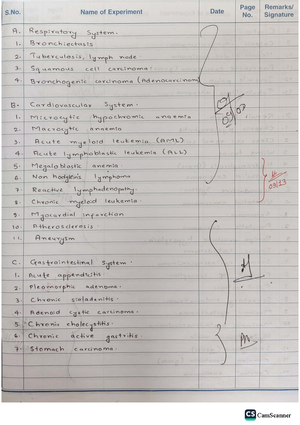 S.No. Name of Experiment Date Page No. Remarks/ Signature
A. Respiratory System.
1. Bronchiectasis
2. Tuberculosis, lymph node
3. Squamous cell carcinoma.
4. Bronchogenic carcinoma (Adenocarcinoma)
B. Cardiovascular System.
1. Microcytic hypochromic anaemia
2. Macrocytic anaemia
3. Acute myeloid leukemia (AML)
4. Acute lymphoblastic leukemia (ALL)
5. Megaloblastic anemia.
6. Non hodgkin's lymphoma
7. Reactive lymphadenopathy.
8. Chronic myeloid leukemia.
9. Myocardial infarction
10. Atherosclerosis
11. Aneurysm
C. Gastrointestinal System.
1. Acute appendicitis
2. Pleomorphic adenoma.
3. Chronic sialadenitis.
4. Adenoid cystic carcinoma.
5. Chronic cholecystitis.
6. Chronic active gastritis.
7. Stomach carcinoma.
CS CamScanner